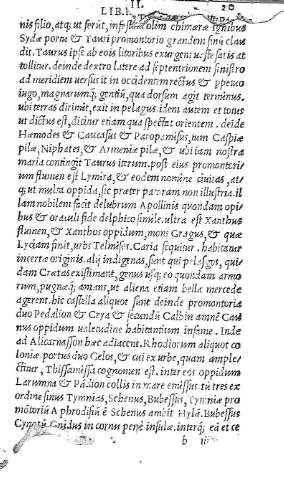 LIB. II. 20
nis filio, atq; ut ferút, infestũ olim chimæræ ignibus
Sydæ portu & Tauri promontorio grandem sinũ clau
dit. Taurus ipse ab eois litoribus exurgens uaste satis at
tollitur. deinde dextro latere ad septentrionem sinistro
ad meridiem uersus it in occidentẽ rectus & ppetuo
iugo, magnarumq; gentiũ, qua dorsum agit terminus.
ubi terras dirimit, exit in pelagus idem autem et totus
ut dictus est, dicitur etiam qua spectat orientem. deide
Hæmodes & Caucasus & Paropamisus, tum Caspiæ
pilæ, Niphates, & Armeniæ pilæ, & ubi iam nostra
maria contingit Taurus iterum. post eius promontori
um flumen est Lymira, & eodem nomine ciuitas, at/
q; ut multa oppida, sic præter pataram non illustria. il
lam nobilem facit delubrum Apollinis quondam opi
bus & oraculi fide delphico simile. ultra est Xanthus
flumen, & Xanthos oppidum, mons Gragus, & quæ
Lyciam finit, urbs Telmisos. Caria sequitur. habitatur
incertæ originis. alij indigenas, sunt qui pelasgos, qui
dam Cretas existimant, genus usq; eo quondam armo
rum, pugnæq; amans, ut aliena etiam bella mercede
agerent. hic castella aliquot sunt deinde promontoria
duo Pedalion & Crya & secundũ Calbin amnẽ Cau
nus oppidum ualetudine habitantium infame. Inde
ad Alicarnasson hæc adiacent. Rhodiorum aliquot co
loniæ portus duo Gelos, & cui ex urbe, quam ample/
ctitur, Thissanussa cognomen est. inter eos oppidum
Larumna & Pãdion collis in mare emissus tũ tres ex
ordine sinus Tymnias, Schenus, Bubessius, Tymniæ pro
mõtoriũ Aphrodisiũ ẽ Schenus ambit Hylã. Bubessius
Cynotũ Gnidus in cornu penẽ insulæ. interq; eã et ce
b